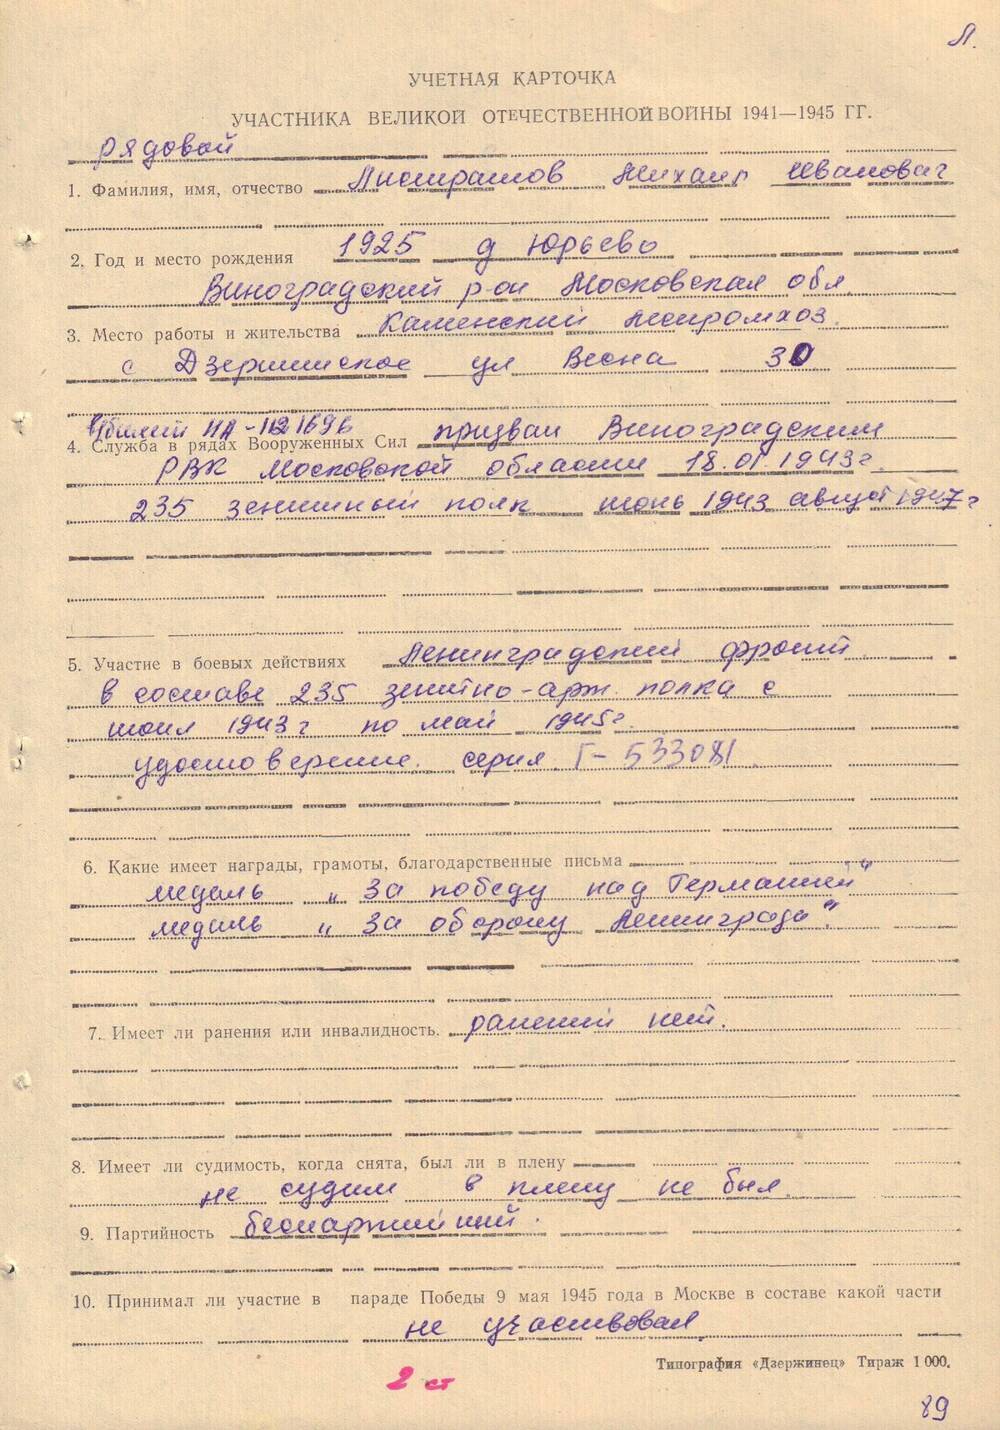 Л.
УЧЕТНАЯ КАРТОЧКА
УЧАСТНИКА ВЕЛИКОЙ ОТЕЧЕСТВЕННОЙ ВОЙНЫ 1941—1945 ГГ.
рядовой
1. Фамилия, имя, отчество Листратов Михаил Иванович
2. Год и место рождения 1925 д Юрьево
Виноградский р-он Московская обл.
3. Место работы и жительства Каменский леспромхоз.
с Дзержинское ул Весна 30
в/билет НД-1121696
4. Служба в рядах Вооруженных Сил призван Виноградским
РВК Московской области 18.01.1943г.
235 зенитный полк июнь 1943 август 1947 г
5. Участие в боевых действиях Ленинградский фронт
в составе 235 зенитно-арт. полка с
июня 1943 г по май 1945г.
удостоверение. серия Г-533081.
6. Какие имеет награды, грамоты, благодарственные письма
медаль „За победу над Германией"
медаль „За оборону Ленинграда".
7. Имеет ли ранения или инвалидность. ранений нет.
8. Имеет ли судимость, когда снята, был ли в плену
не судим в плену не был.
9. Партийность беспартийный.
10. Принимал ли участие в параде Победы 9 мая 1945 года в Москве в составе какой части
не участвовал
Типография «Дзержинец» Тираж 1 000.
2 ст
89